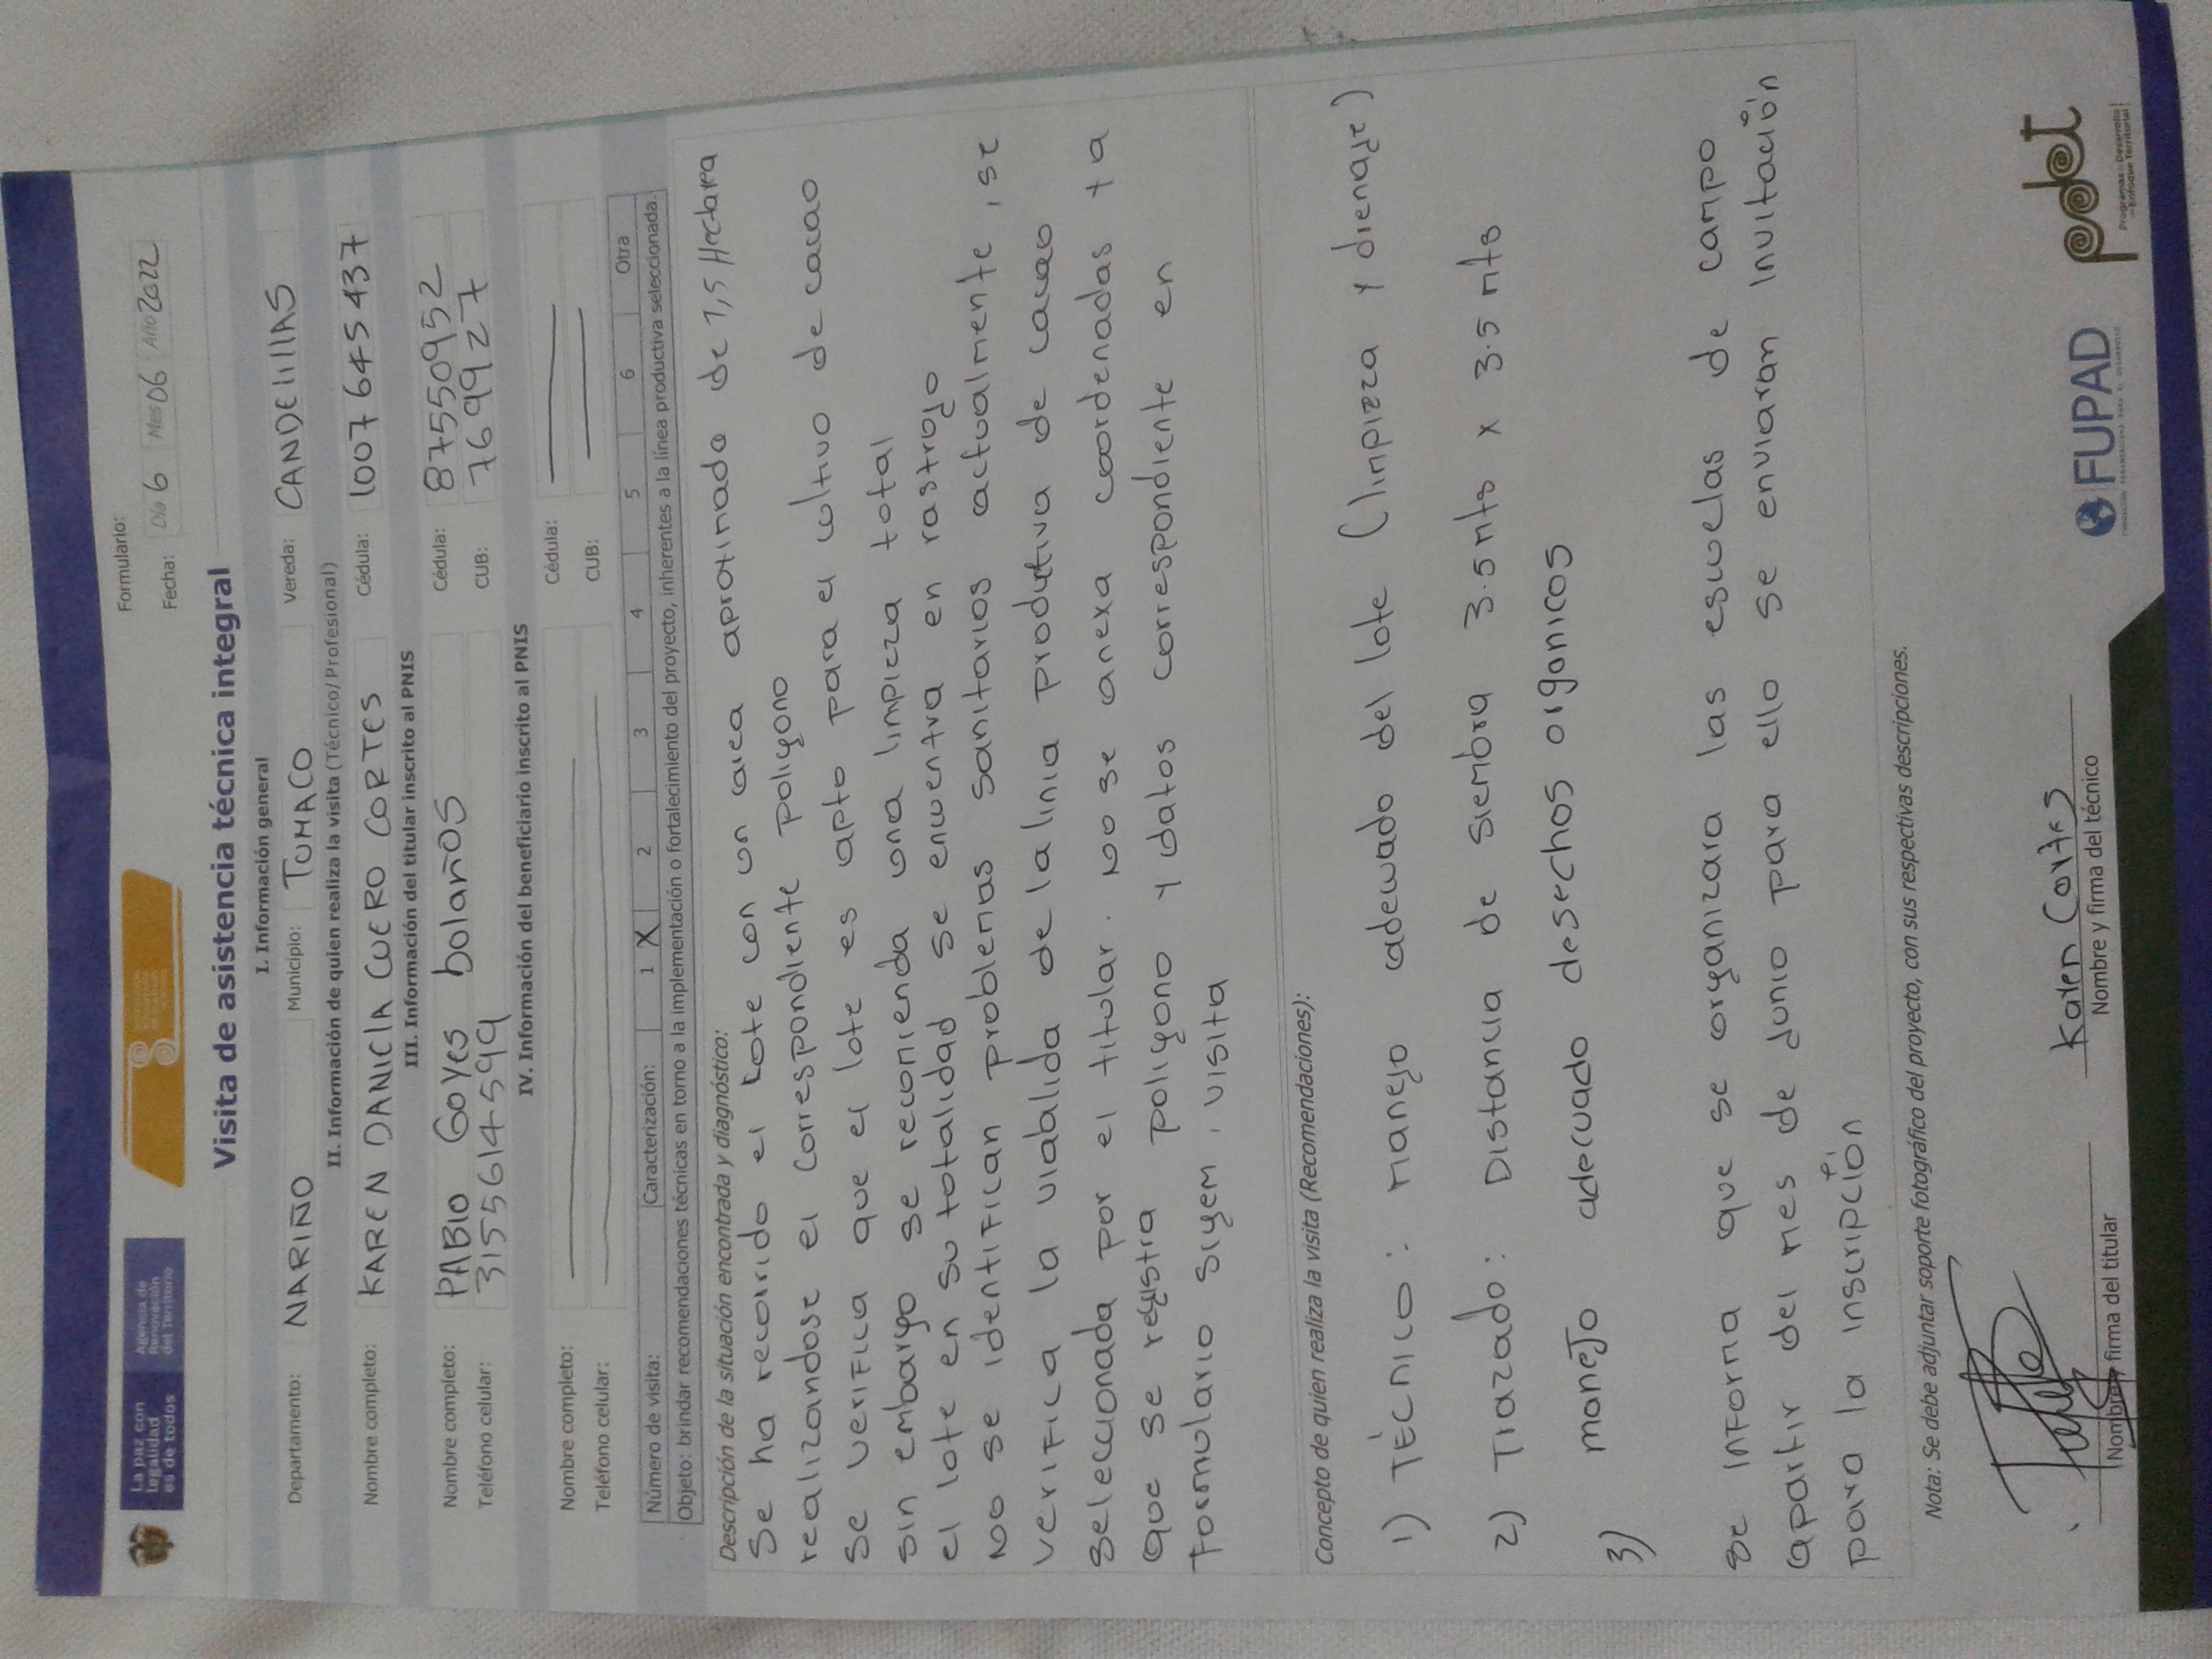 La paz con
legalidad
es de todos
Agencia de
Renovación
del Territorio
Formulario:
Fecha: Día 6 Mes 06 Año 2022
Visita de asistencia técnica integral
I. Información general
Departamento: NARIÑO Municipio: TUMACO Vereda: CANDElillAS
II. Información de quien realiza la visita (Técnico/ Profesional)
Nombre completo: KAREN DANIELA CUERO CORTES Cédula: 1007645437
III. Información del titular inscrito al PNIS
Nombre completo: PABlO GOYES bolaÑOS Cédula: 87550952
Teléfono celular: 3155614599 CUB: 7699727
IV. Información del beneficiario inscrito al PNIS
Nombre completo: Cédula:
Teléfono celular: CUB:
Número de visita: Caracterización: 1 X 2 3 4 5 6 Otra
Objeto: brindar recomendaciones técnicas en torno a la implementación o fortalecimiento del proyecto, inherentes a la línea productiva seleccionada.
Descripción de la situación encontrada y diagnóstico:
Se ha recorrido el Lote con un area aprotimada de 1,5 Hectara
realizandose el correspondiente poligono
Se verifica que el lote es apto para el cultivo de cacao
sin embargo se recomienda una limpieza total
el lote en su totalidad se encuentra en rastrojo
No se identifican problemas sanitarios actualmente, se
verifica la viablida de la linia produtiva de cacao
seleccuonada por el titular. No se anexa coordenadas ta
que se registra poligono y datos correspondiente en
formulario sigem, visita
Concepto de quien realiza la visita (Recomendaciones):
1) TÉCNICO: Manejo adecuado del lote (limpieza y drenaje)
2) Trazado: Distancia de siembra 3.5 mts x 3.5 mts
3) manejo adecuado desechos organicos
se informa que se organizara las escuelas de campo
apartir del mes de Junio para ello se enviaran Invitación
para la inscripción
Nota: Se debe adjuntar soporte fotográfico del proyecto, con sus respectivas descripciones.
Karen Cortes
Nombre y firma del titular
Nombre y firma del técnico
FUPAD
FUNDACIÓN PANAMERICANA PARA EL DESARROLLO
pdet
Programas de Desarrollo
con Enfoque Territorial